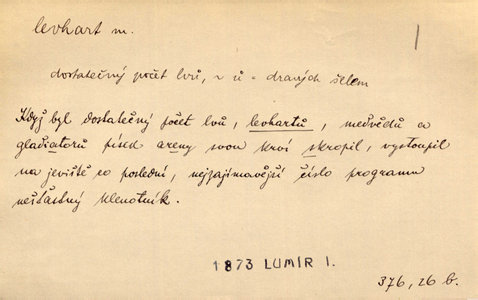 levhart m.
dostatečný počet lvů, ~ ů = dravých šelem
Když byl dostatečný počet lvů, levhartů, medvědů a
gladiatorů písek areny svou krví skropil, vystoupil
na jeviště co poslední, nejzajímavější číslo programu
nešťastný klenotník.
1873 LUMÍR I.
376, 26 b.